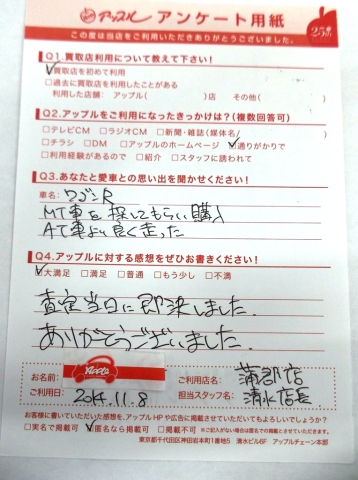 アップル アンケート用紙
25th
この度は当店をご利用いただきありがとうございました。
Q1.買取店利用について教えて下さい!
☑買取店を初めて利用
□過去に買取店を利用したことがある
利用した店舗: アップル( )店 その他( )
Q2.アップルをご利用になったきっかけは?(複数回答可)
□テレビCM □ラジオCM □新聞・雑誌(媒体名 )
□チラシ □DM □アップルのホームページ ☑通りがかりで
□利用経験があるので □紹介 □スタッフに誘われて
Q3.あなたと愛車との思い出を聞かせください!
車名: ワゴンR
MT車を探してもらい購入
AT車より良く走った
Q4.アップルに対する感想をぜひお書きください!
☑大満足 □満足 □普通 □もう少し □不満
査定当日に即決しました。
ありがとうございました。
お名前: アップル
ご利用店名: 蒲郡店
ご利用日: 2014.11.8
担当スタッフ名: 清水店長
お客様に書いていただいた感想を、アップルHPや広告に掲載させていただいてもよろしいでしょうか?
□実名で掲載可 ☑匿名なら掲載可 □掲載不可 ※ご記入がない場合は匿名での掲載とさせていただきます。
東京都千代田区神田岩本町1番地5 清水ビル6F アップルチェーン本部